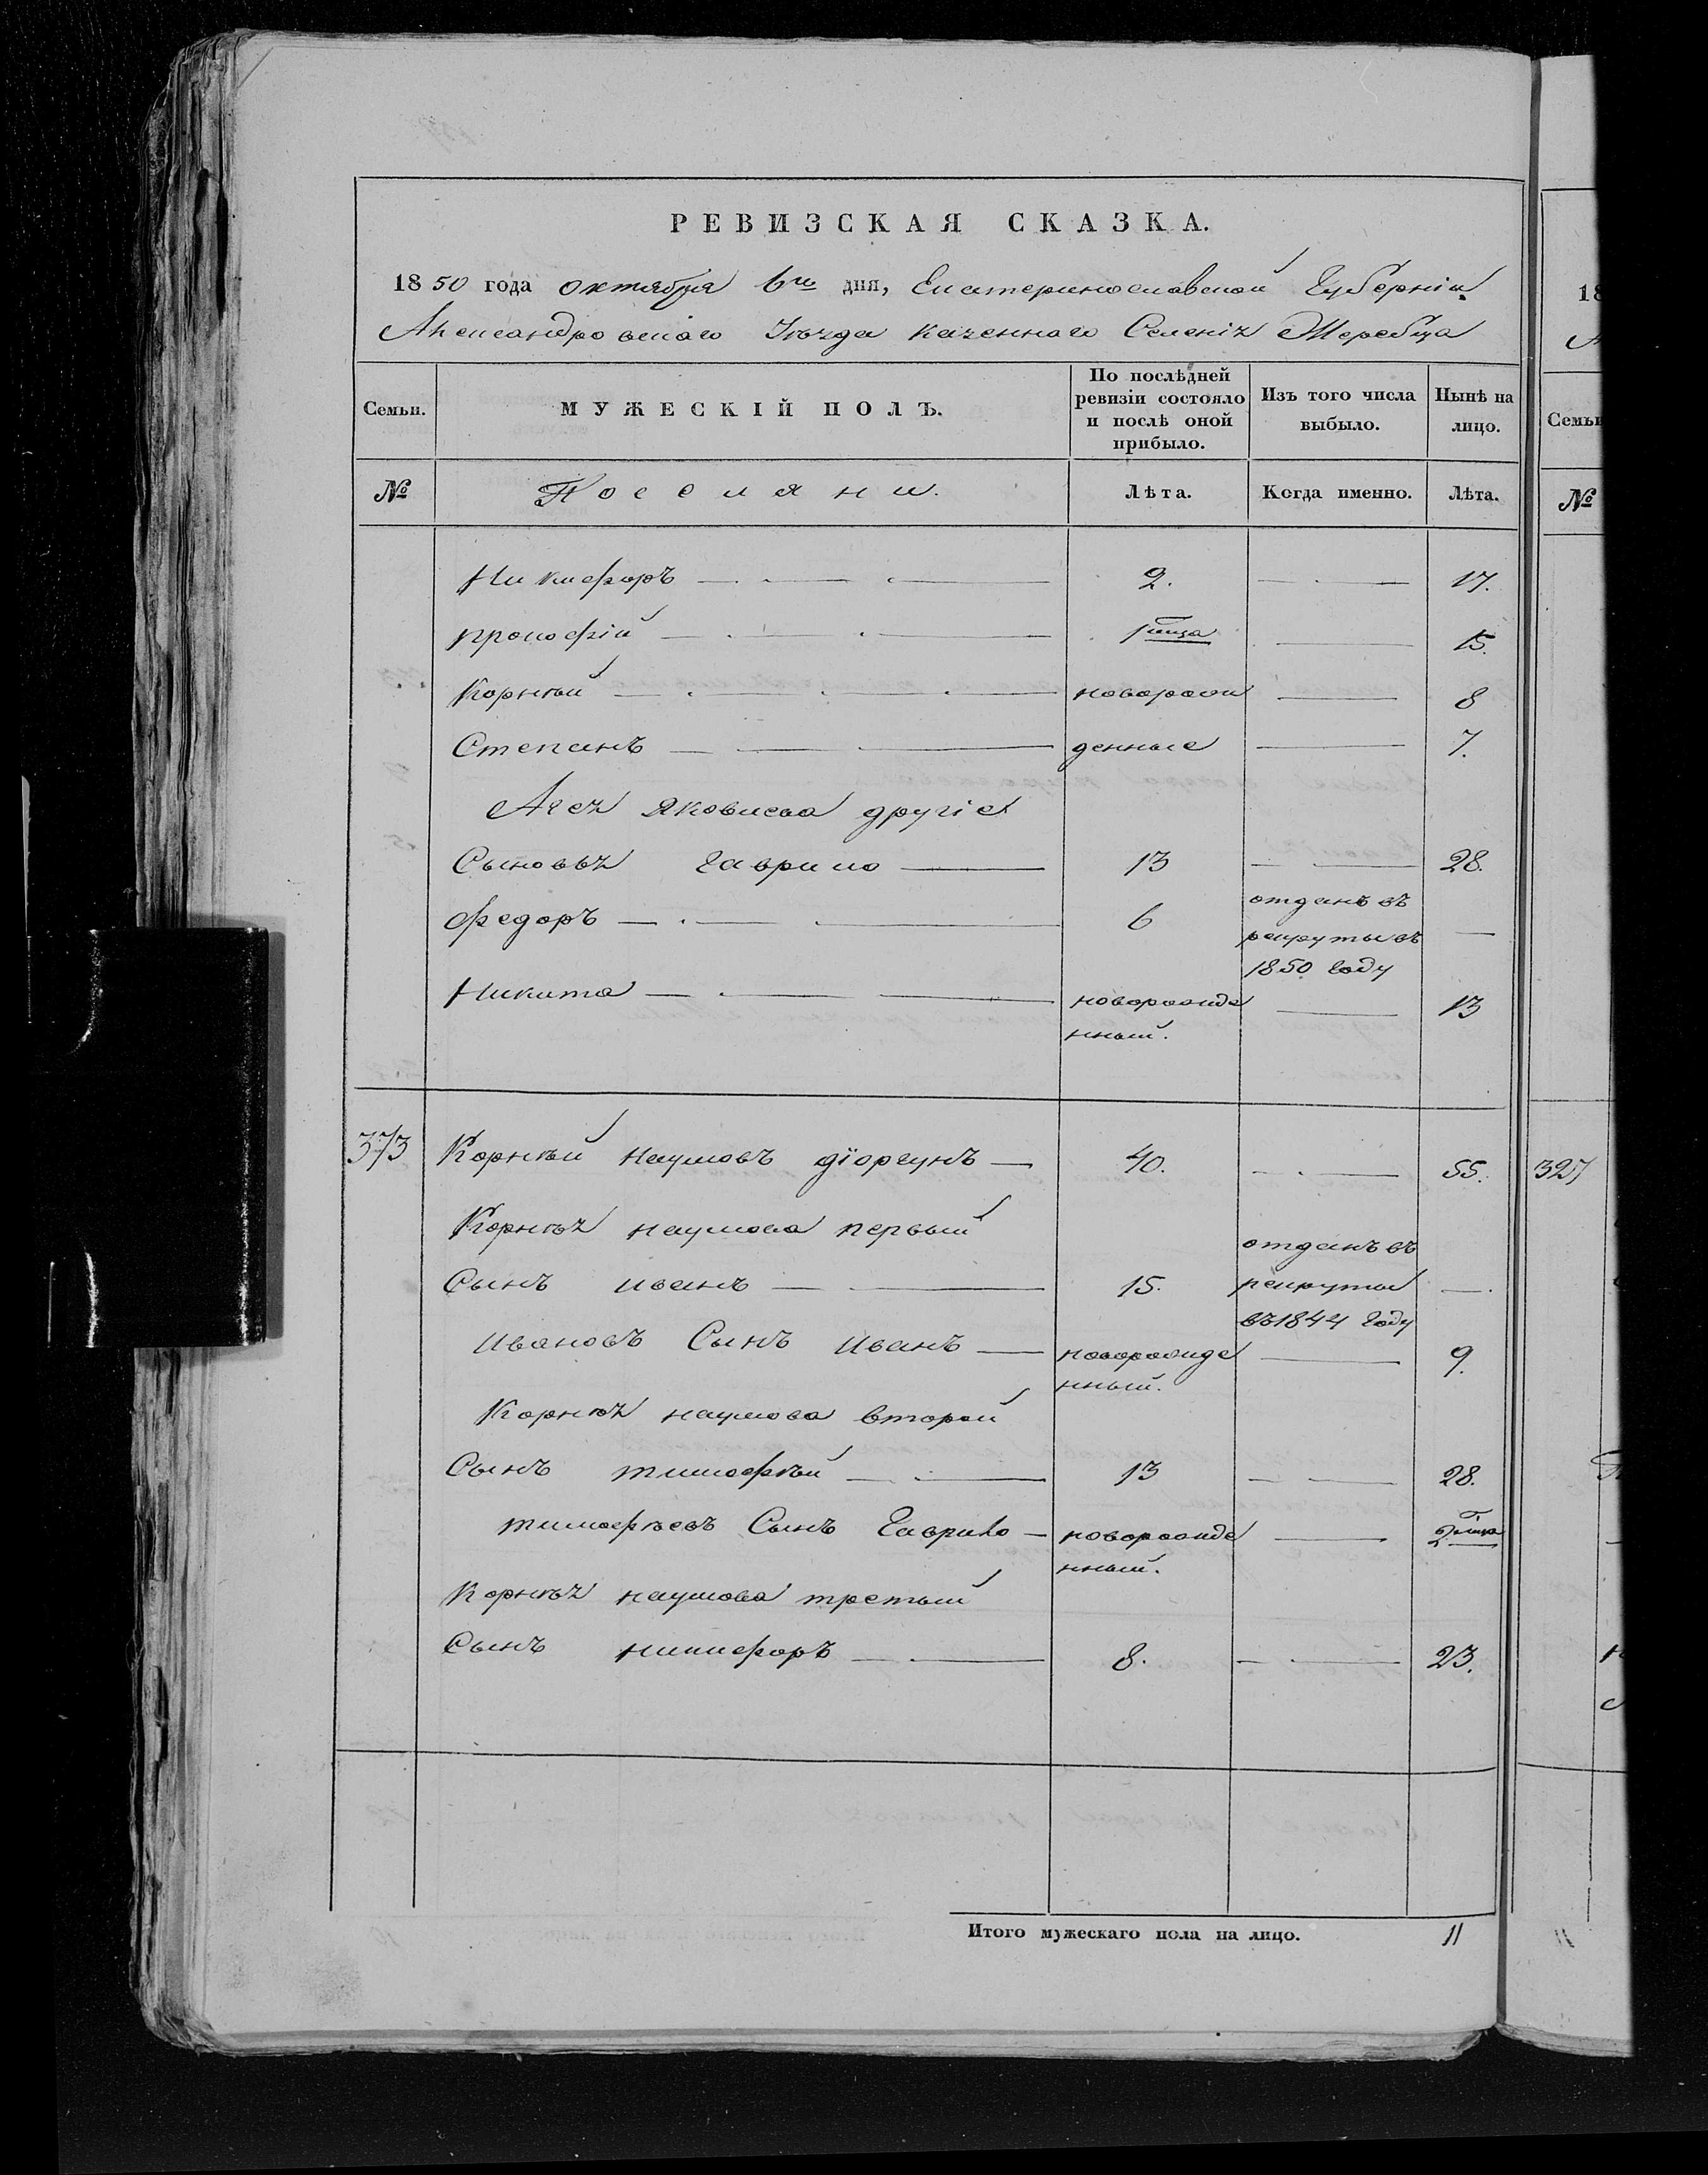 РЕВИЗСКАЯ СКАЗКА.
1850 года октября 6го дня, Екатеринославской Губерніи
Александровскаго Уѣзда казеннаго Селенія Жеребца
Семьи. МУЖЕСКІЙ ПОЛЪ. По послѣдней ревизіи состояло и послѣ оной прибыло. Изъ того числа выбыло. Нынѣ на лицо.
№ Поселяни. Лѣта. Когда именно. Лѣта.
Никифоръ 2. 17.
прокофій 1 15.
Корнѣй новорож 8
Степанъ денные 7.
Яковлева другіе
Сыновья Гаврило 13 28.
федоръ 6 отданъ въ рекруты въ 1850 году —
Никита новорожденный. 13
373 Корнѣй наумовъ діоргунъ 40. 55.
Корнѣя наумова первый
Сынъ иванъ 15. отданъ въ рекруты въ 1844 году —
ивановъ Сынъ иванъ новорожденный. 9.
Корнѣя наумова второй
Сынъ тимофѣй 13 28.
тимофѣевъ Сынъ Гаврило новорожденный. 2
Корнѣя наумова третый
Сынъ никифоръ 8. 23.
Итого мужескаго пола на лицо. 11
18
Семьи
№
327